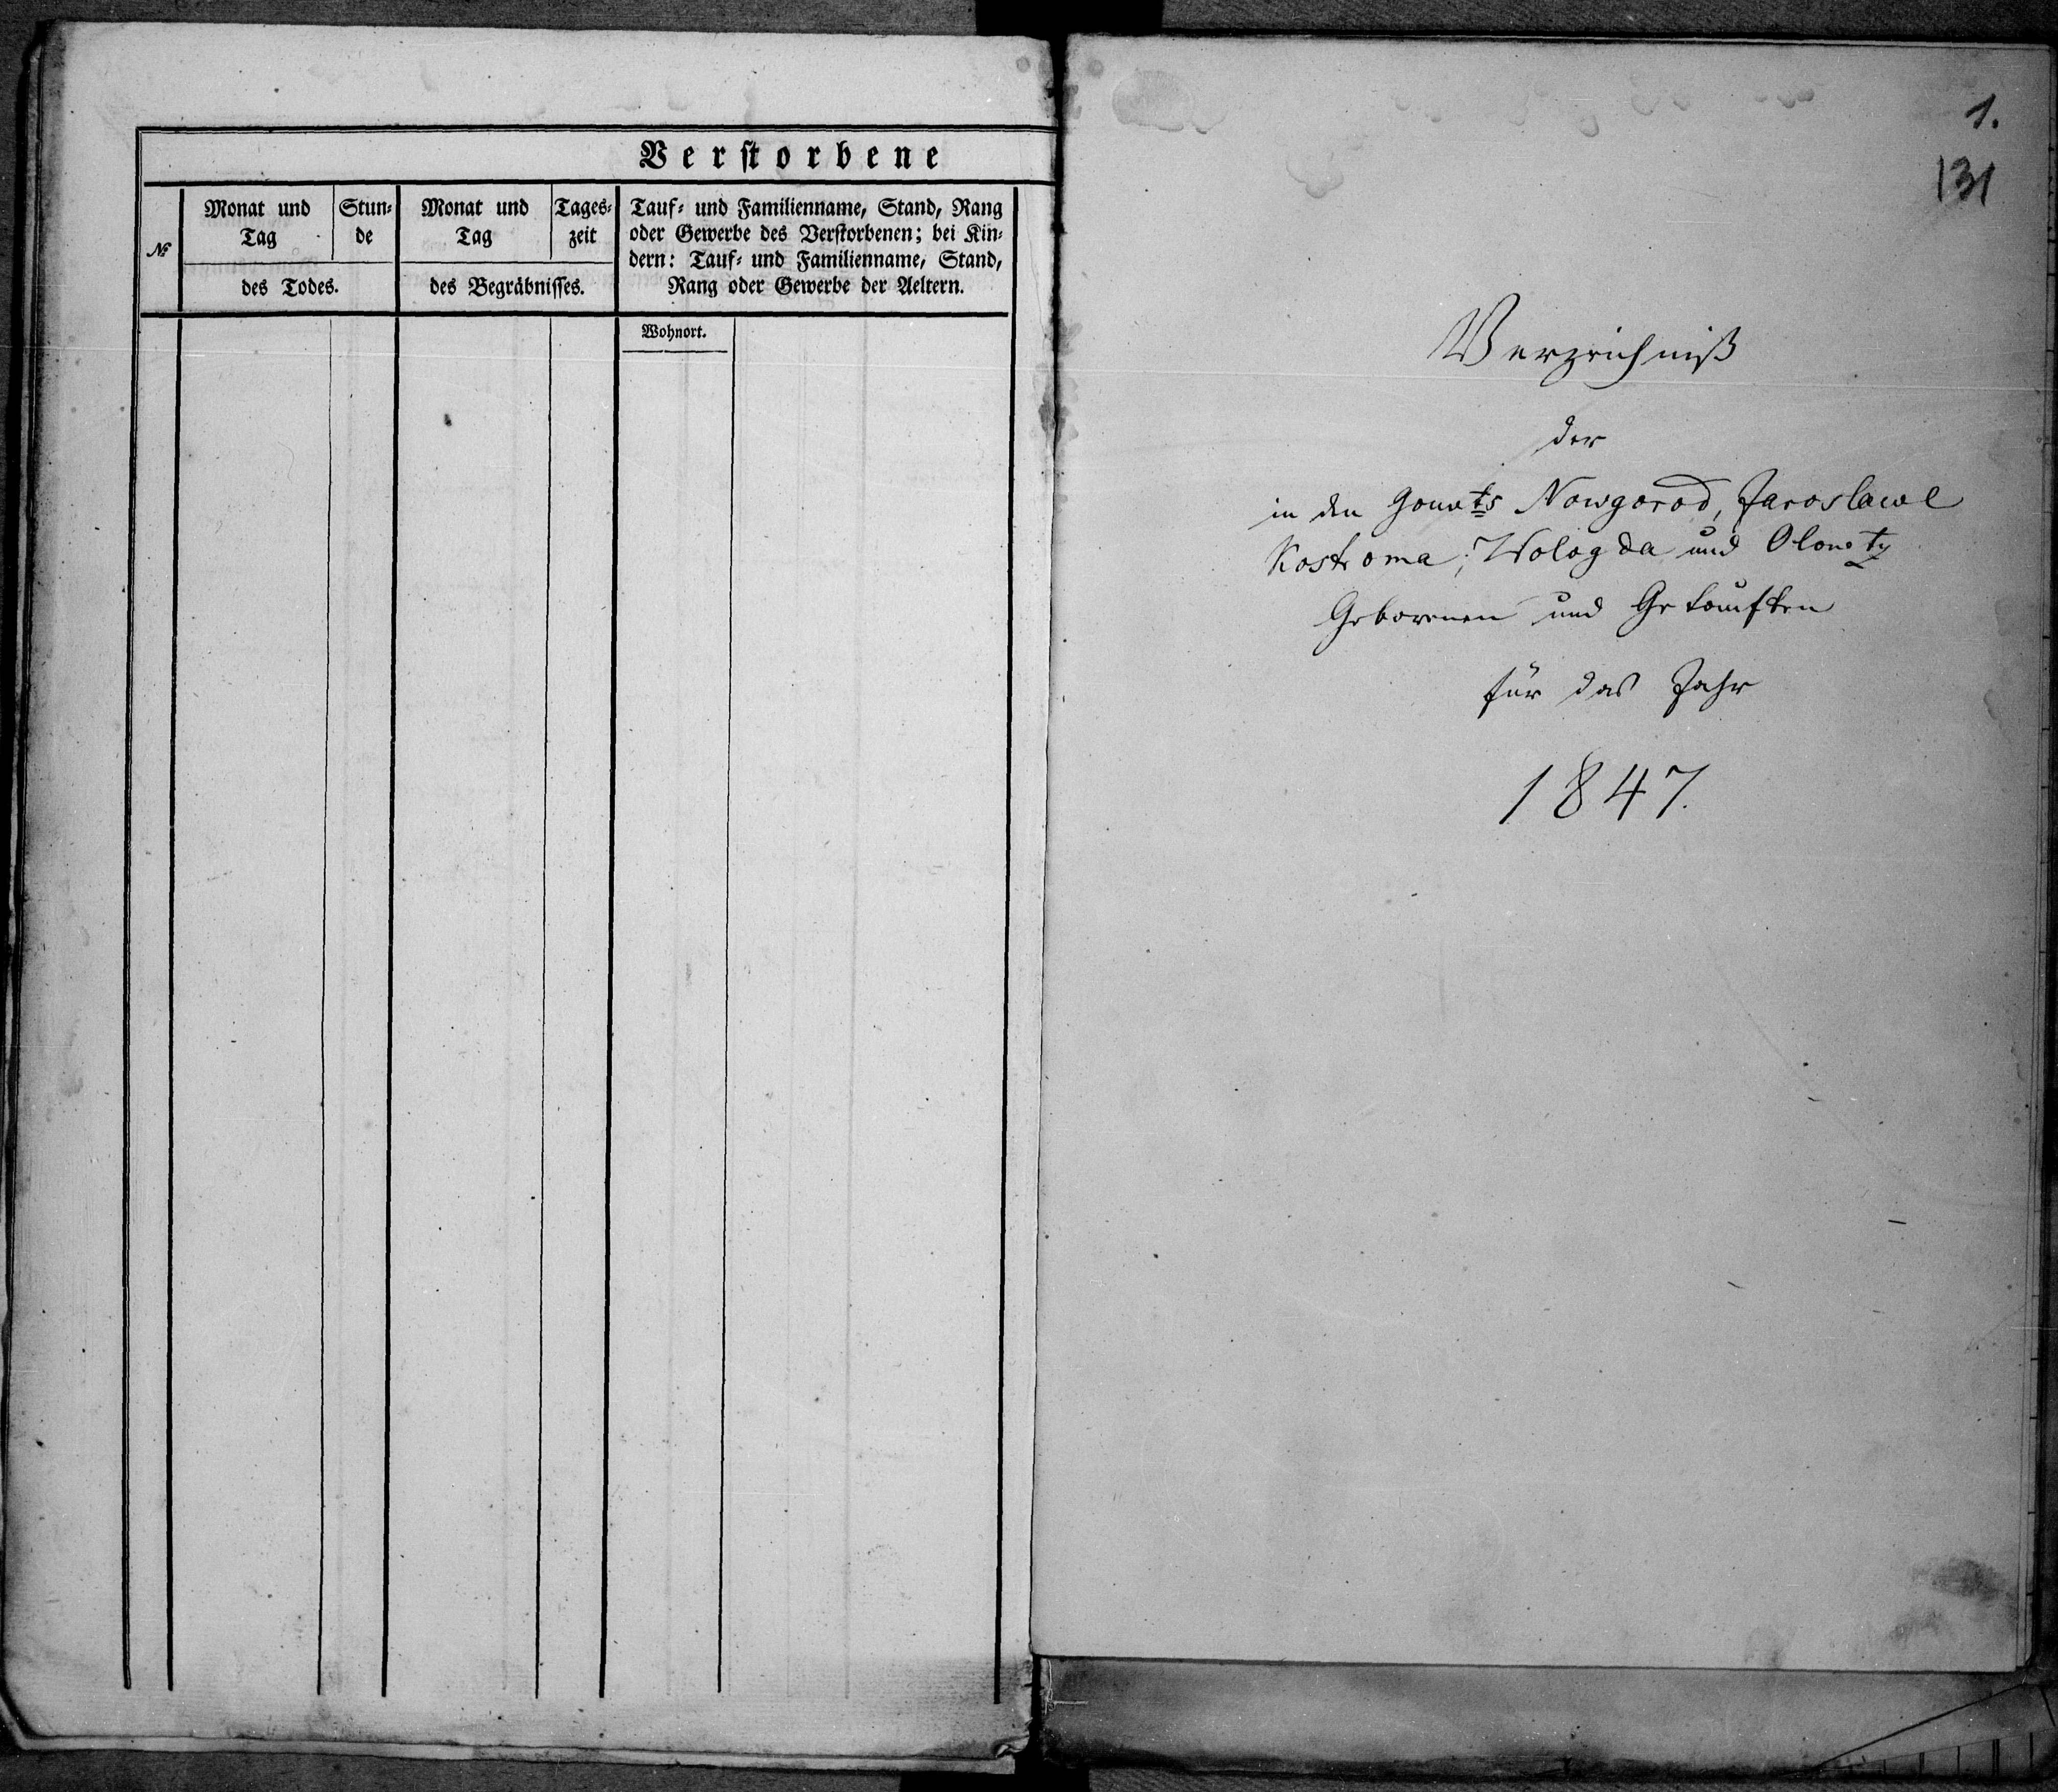 Verstorbene
№
Monat und
Tag
Stun-
de
des Todes.
Monat und
Tag
Tages-
zeit
des Begräbnisses.
Tauf- und Familienname, Stand, Rang
oder Gewerbe des Verstorbenen; bei Kin-
dern: Tauf- und Familienname, Stand,
Rang oder Gewerbe der Aeltern.
Wohnort.
1.
131
Verzeichniß
der
in den Gouvts Nowgorod, Jaroslawl
Kostroma, Wologda und Olonetz
Geborenen und Getauften
für das Jahr
1847.